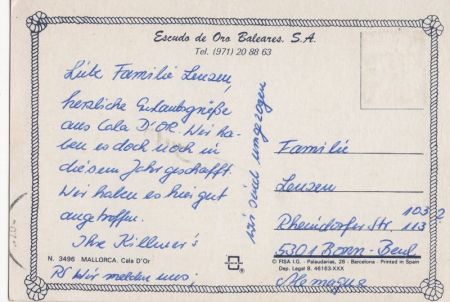 Escudo de Oro Baleares. S.A.
Tel. (971) 20 88 63
Liebe Familie Lenzen,
herzliche Urlaubsgrüße
aus Cala D'OR. Wir ha-
ben es doch noch in
diesem Jahr geschafft.
Wir haben es hier gut
angetroffen.
Ihre Killmer's
PS Wir melden uns,
wir sind umgezogen
Familie
Lenzen
Rheindorfer Str. 113
5301 Bonn-Beul
Alemagne
N. 3496 MALLORCA. Cala D'Or
© FISA I.G. - Palaudarias, 26 - Barcelona - Printed in Spain
Dep. Legal B. 46163-XXX